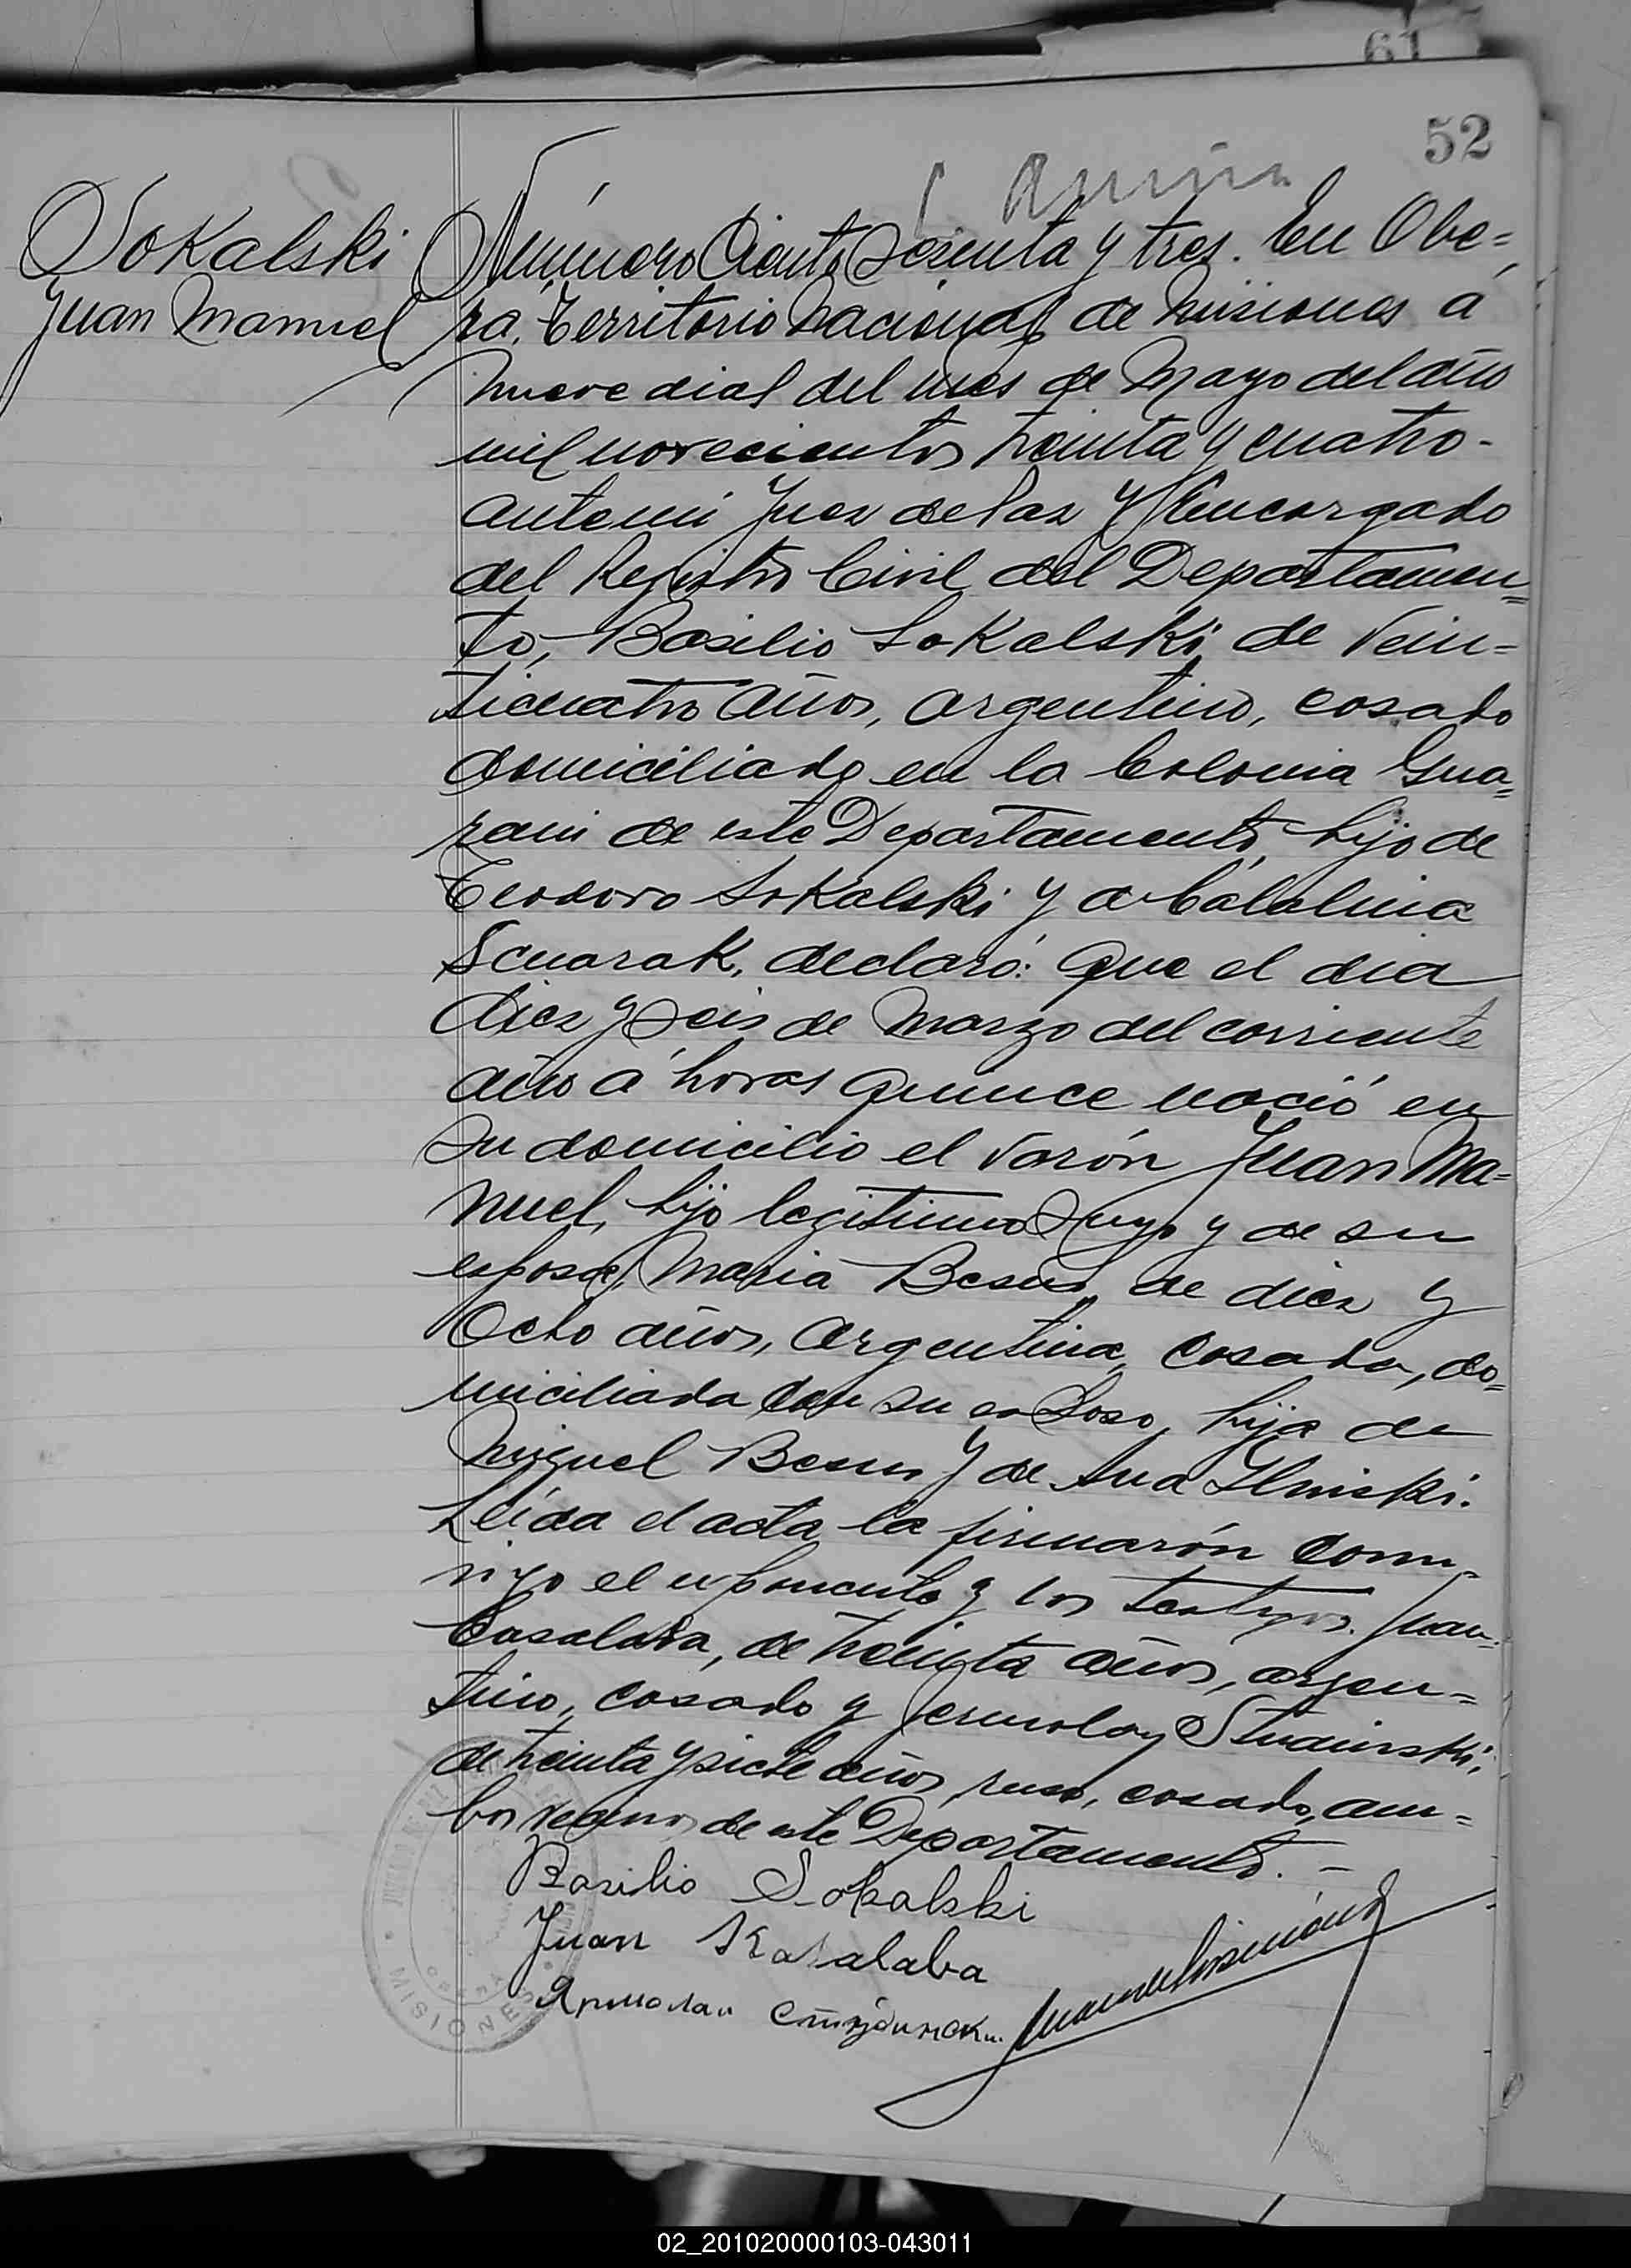 61
52
Sokalski
Juan Manuel
Número Ciento Sesenta y tres. En Obe=
rá, Territorio Nacional de Misiones á
nueve dias del mes de Mayo del año
mil novecientos treinta y cuatro-
ante mi Juez de Paz y Encargado
del Registro Civil del Departamen=
to, Basilio Sokalski, de Vein=
ticuatro años, argentino, casado
domiciliado en la Colonia Gua=
rani de este Departamento, hijo de
Teodoro Sokalski y de Catalina
Scuarak, declaró: Que el dia
diez y seis de Marzo del corriente
año á horas quince nació en
su domicilio el varón Juan Ma=
nuel, hijo legitimo suyo y de su
esposa, Maria Besus, de diez y
Ocho años, Argentina, casada, do=
miciliada con su esposo, hija de
Miguel Besus y de Ana Ilniski.
Leida el acta la firmarón conm
igo el exponente y los testigos. Juan
Casalaba, de treinta años, argen=
tino, casado y Jermolay Studinski,
de treinta y siete años, ruso, casado, am=
bos vecinos de este Departamento. -
Basilio Sokalski
Juan Kasalaba
Ярмолай Студински.
MISIONES
02_201020000103-043011